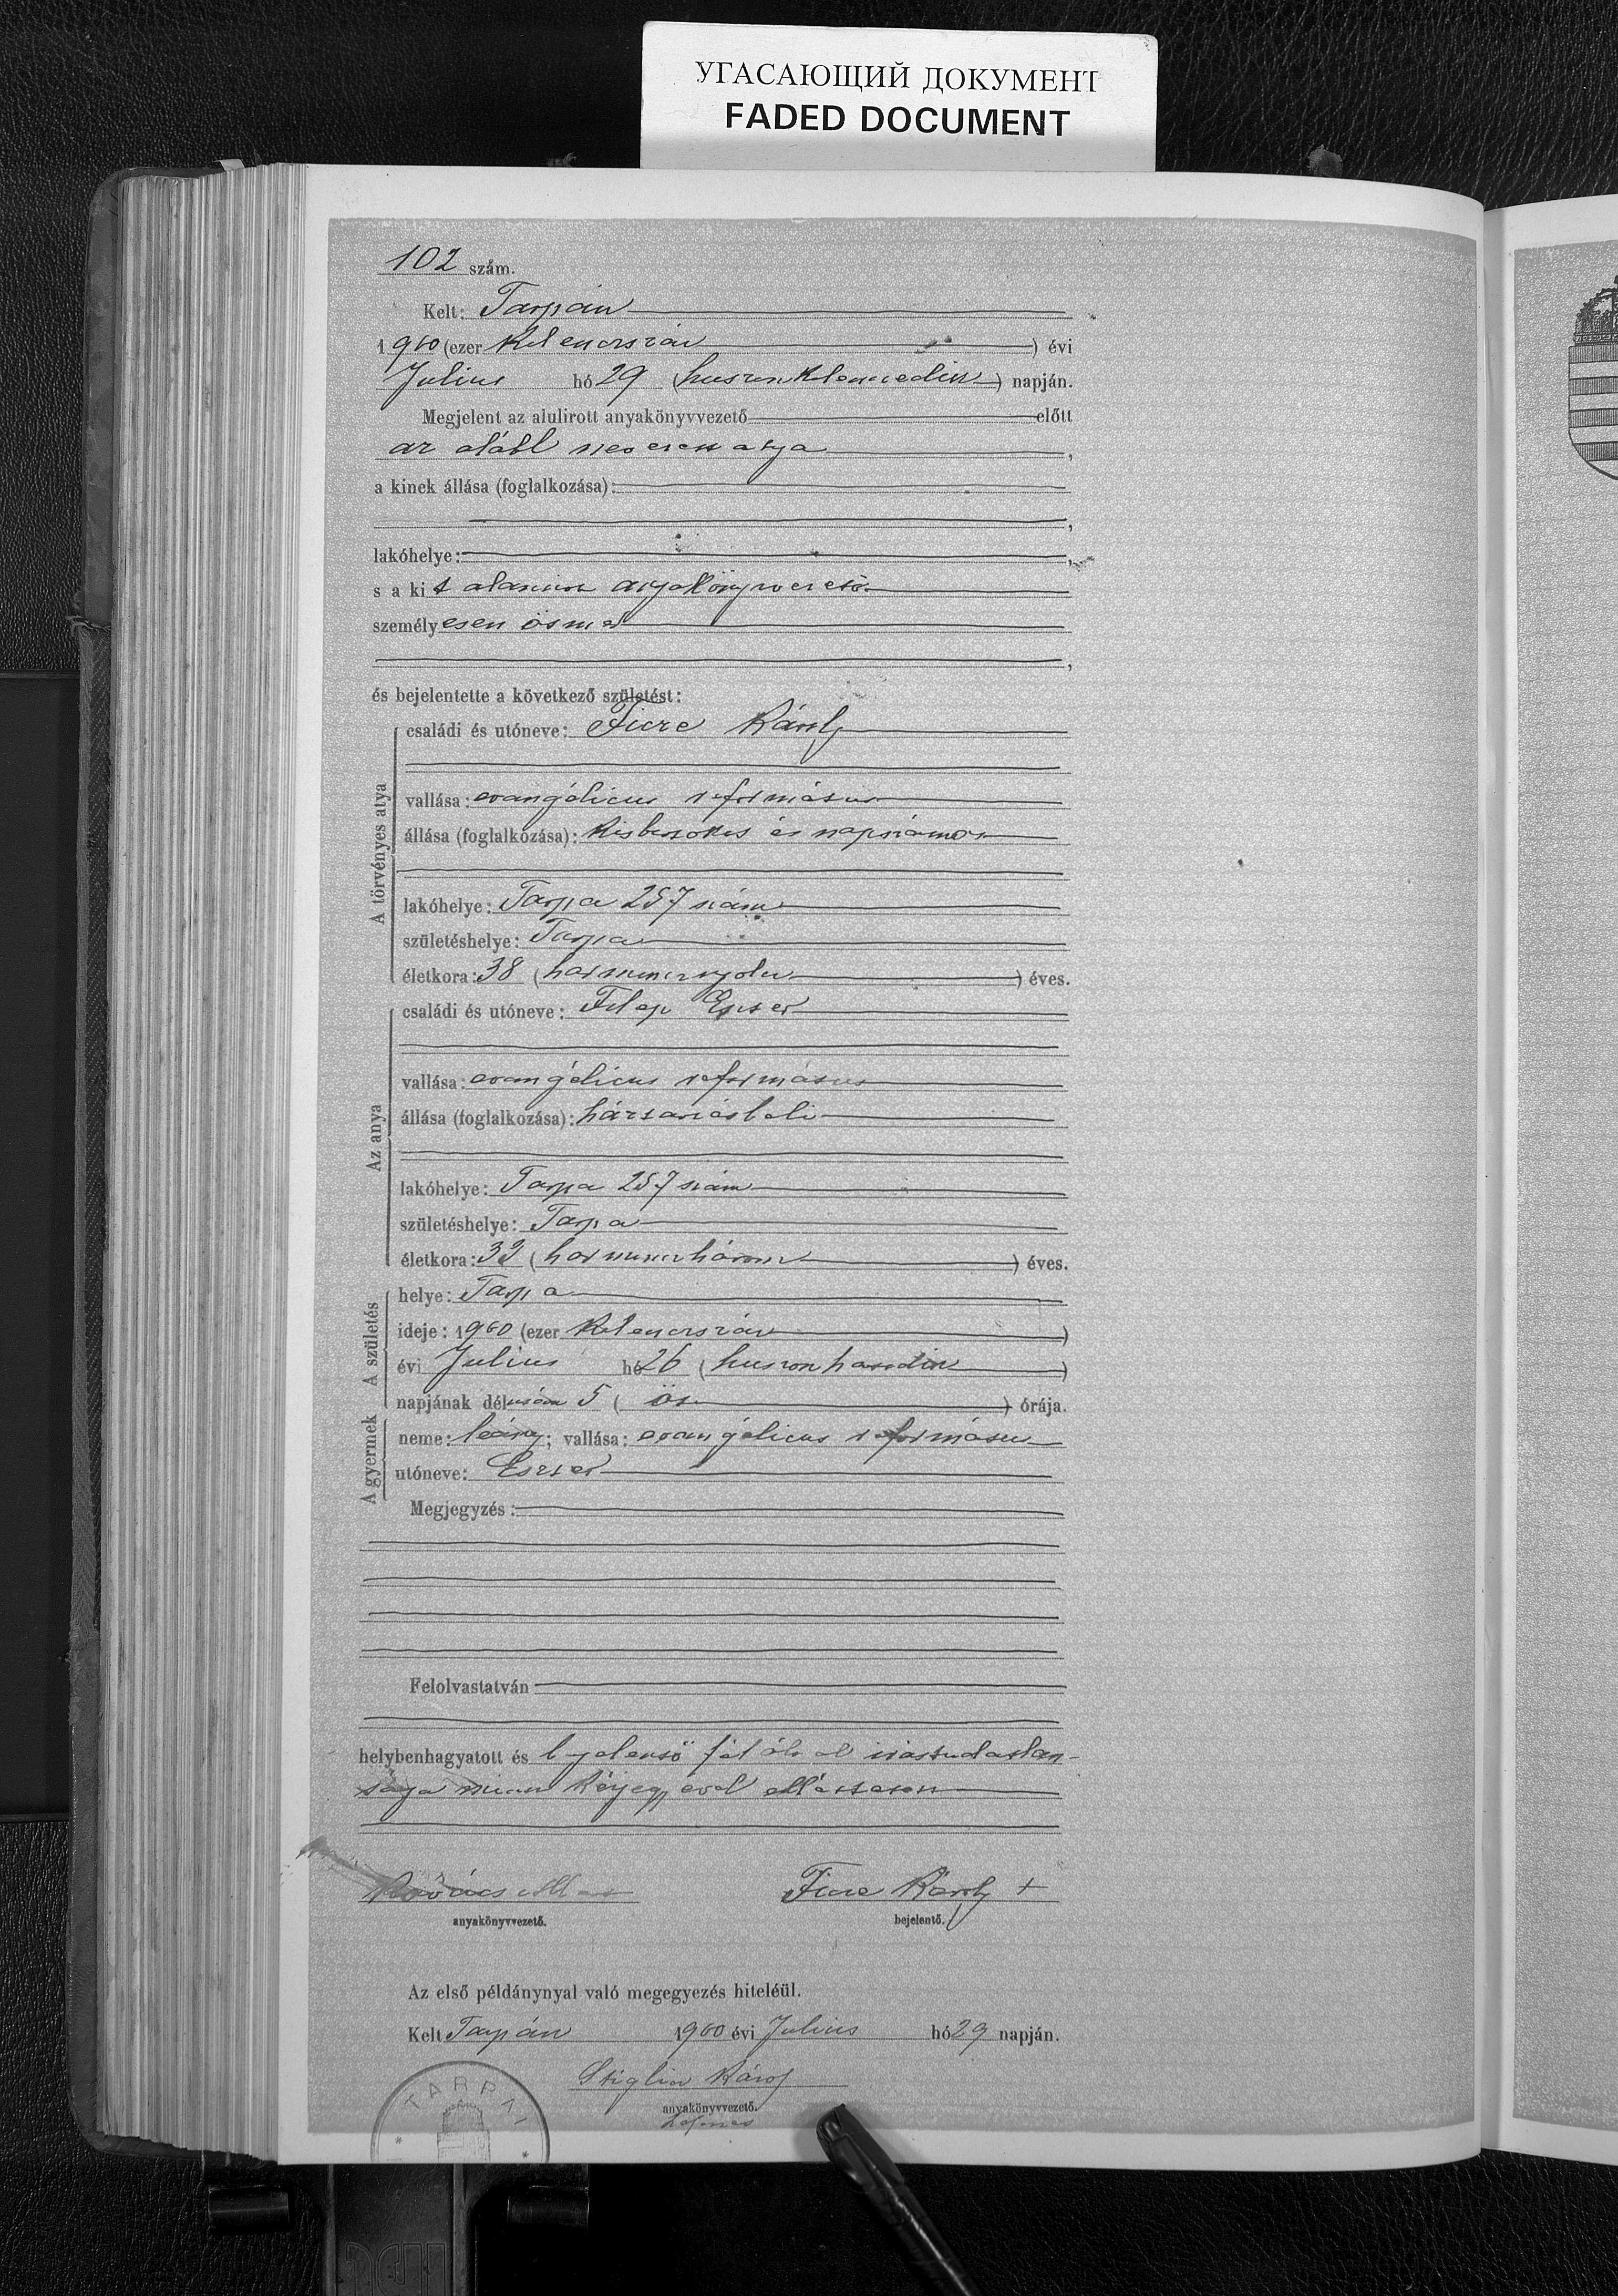 УГАСАЮЩИЙ ДОКУМЕНТ
FADED DOCUMENT
102 szám.
Kelt: Tarpán
1900 (ezer kilencszáz ) évi
Julius hó 29 (huszonkilencedik ) napján.
Megjelent az alulirott anyakönyvvezető előtt
az alább nevezett atya ,
a kinek állása (foglalkozása):
,
lakóhelye: ,
s a kit alanniro anyakönyvvezető
személyesen ösmer
,
és bejelentette a következő születést:
A törvényes atya
családi és utóneve: Ficze Károly
vallása: evangélicus református
állása (foglalkozása): kisbirtokos és napszámos
lakóhelye: Tarpa 257 szám
születéshelye: Tarpa
életkora: 38 (harmincznyolcz ) éves.
Az anya
családi és utóneve: Filep Eszter
vallása: evangélicus református
állása (foglalkozása): háztartásbeli
lakóhelye: Tarpa 257 szám
születéshelye: Tarpa
életkora: 33 (harmincz három ) éves.
A születés
helye: Tarpa
ideje: 1900 (ezer kilencszáz )
évi Julius hó 26 (huszonhatodik )
napjának délután 5 ( öt ) órája.
A gyermek
neme: leány; vallása: evangélicus református
utóneve: Eszter
Megjegyzés:
Felolvastatván
helybenhagyatott és bejelentő fél által irástudatlan-
sága miatt kézjegyével elláttatott
Kovács
anyakönyvvezető.
Ficze Károly +
bejelentő.
Az első példánynyal való megegyezés hiteléül.
Kelt Tarpán 1900 évi Julius hó 29 napján.
Stiglin Károly
anyakönyvvezető.
helyettes
TARPAI